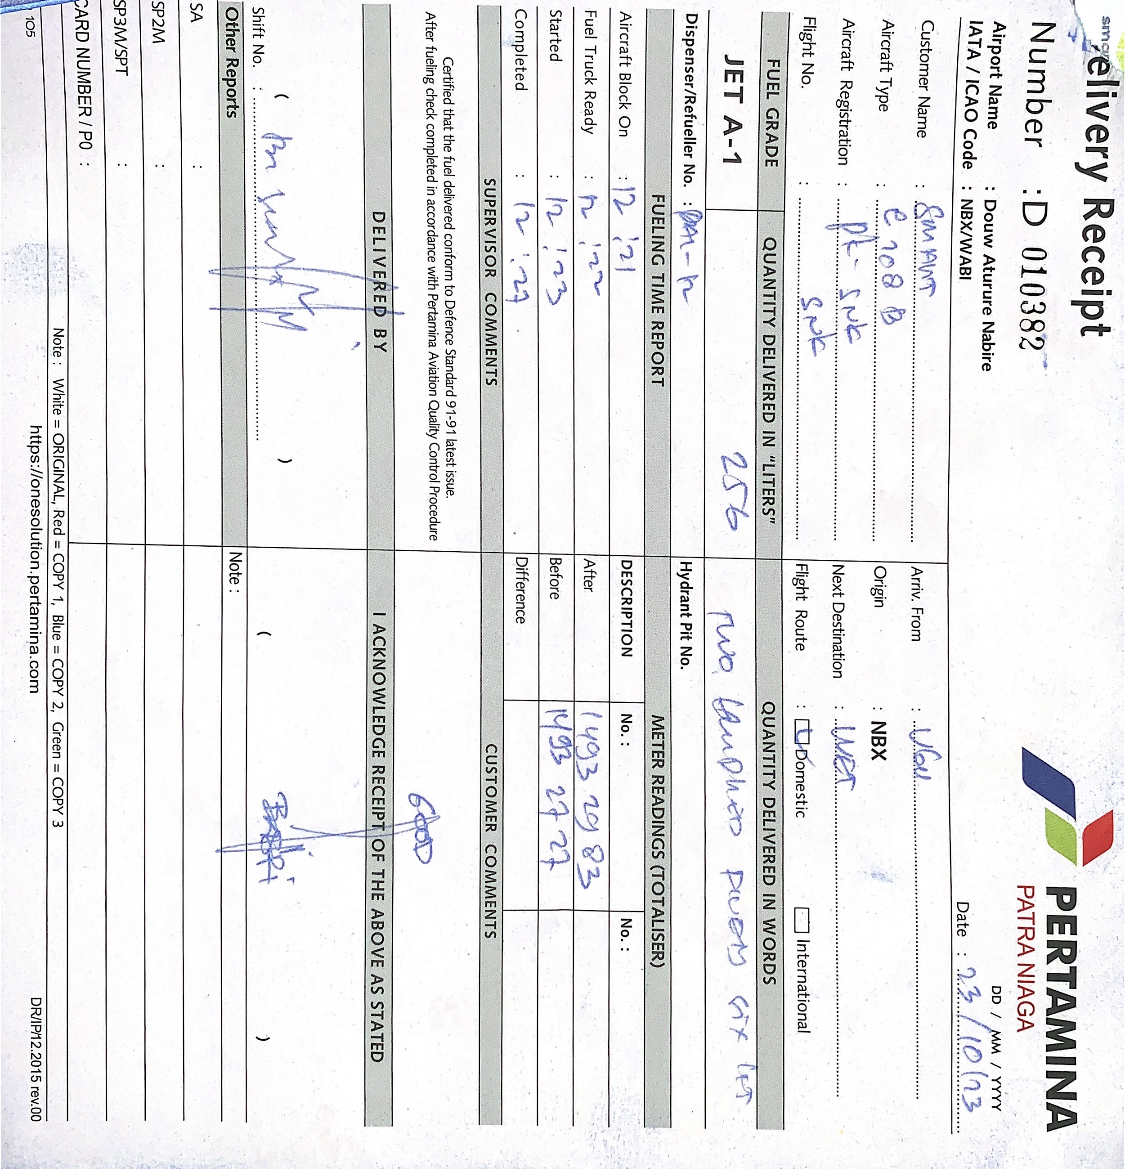 elivery Receipt
Number : D 010382
PERTAMINA
PATRA NIAGA
DD / MM / YYYY
Airport Name : Douw Aturure Nabire
IATA / ICAO Code : NBX/WABI
Date : 23/10/23
Customer Name : SMART
Arriv. From :
Aircraft Type : C 208 B
Origin : NBX
Aircraft Registration : PK - SNK
Next Destination :
Flight No. : SNK
Flight Route : Domestic International
FUEL GRADE
QUANTITY DELIVERED IN "LITERS"
QUANTITY DELIVERED IN WORDS
JET A-1
256
Dispenser/Refueller No. :
Hydrant Pit No.
FUELING TIME REPORT
METER READINGS (TOTALISER)
Aircraft Block On : 12 : 21
DESCRIPTION No. : No. :
Fuel Truck Ready : 12 : 22
After 1493 29 83
Started : 12 : 23
Before 1493 27 27
Completed : 12 : 27
Difference
SUPERVISOR COMMENTS
CUSTOMER COMMENTS
Certified that the fuel delivered conform to Defence Standard 91-91 latest issue.
After fueling check completed in accordance with Pertamina Aviation Quality Control Procedure
GOOD
DELIVERED BY
I ACKNOWLEDGE RECEIPT OF THE ABOVE AS STATED
( )
( )
Shift No. :
Other Reports
Note :
SA :
SP2M :
SP3M/SPT :
CARD NUMBER / PO :
Note : White = ORIGINAL, Red = COPY 1, Blue = COPY 2, Green = COPY 3
https://onesolution.pertamina.com
105
DR/IP/12.2015 rev.00